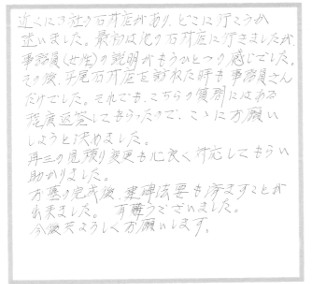 近くに3社の石井店があり、どこに行こうか
迷いました。最初は他の石井店に行きましたが、
事務員(女性)の説明がもうひとつの感じでした。
その後、平尾石井店を訪れた時も事務員さん
だけでした。それでも、こちらの質問にはある
程度返答してもらったので、ここにお願い
しようと決めました。
再三の見積り変更も心良く対応してもらい
助かりました。
お墓の完成後、建碑法要も済ますことが
出来ました。有難うございました。
今後共よろしくお願いします。